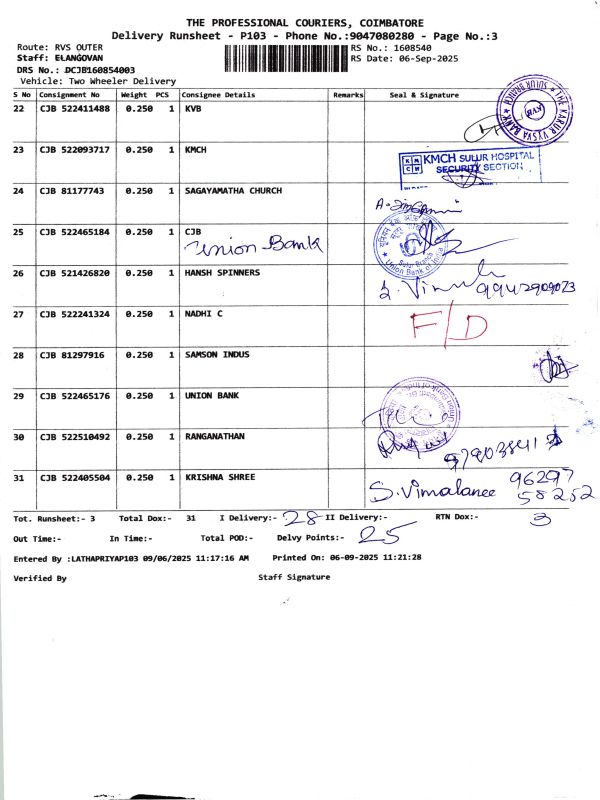 THE PROFESSIONAL COURIERS, COIMBATORE
Delivery Runsheet - P103 - Phone No.:9047080280 - Page No.:3
Route: RVS OUTER RS No.: 1608540
Staff: ELANGOVAN RS Date: 06-Sep-2025
DRS No.: DCJB160854003
Vehicle: Two Wheeler Delivery
S No Consignment No Weight PCS Consignee Details Remarks Seal & Signature
22 CJB 522411488 0.250 1 KVB
THE KARUR VYSYA BANK SULUR BRANCH KVB
23 CJB 522093717 0.250 1 KMCH
KMCH SULUR HOSPITAL
SECURITY SECTION
24 CJB 81177743 0.250 1 SAGAYAMATHA CHURCH
25 CJB 522465184 0.250 1 CJB
Union Bank
Sulur Branch
Union Bank of India
26 CJB 521426820 0.250 1 HANSH SPINNERS
9942909023
27 CJB 522241324 0.250 1 NADHI C F/D
28 CJB 81297916 0.250 1 SAMSON INDUS
29 CJB 522465176 0.250 1 UNION BANK
Union Bank of India
30 CJB 522510492 0.250 1 RANGANATHAN
31 CJB 522405504 0.250 1 KRISHNA SHREE S. Vimalanee 96297
58252
Tot. Runsheet:- 3 Total Dox:- 31 I Delivery:- 28 II Delivery:- RTN Dox:- 3
Out Time:- In Time:- Total POD:- Delvy Points:- 25
Entered By :LATHAPRIYAP103 09/06/2025 11:17:16 AM Printed On: 06-09-2025 11:21:28
Verified By Staff Signature